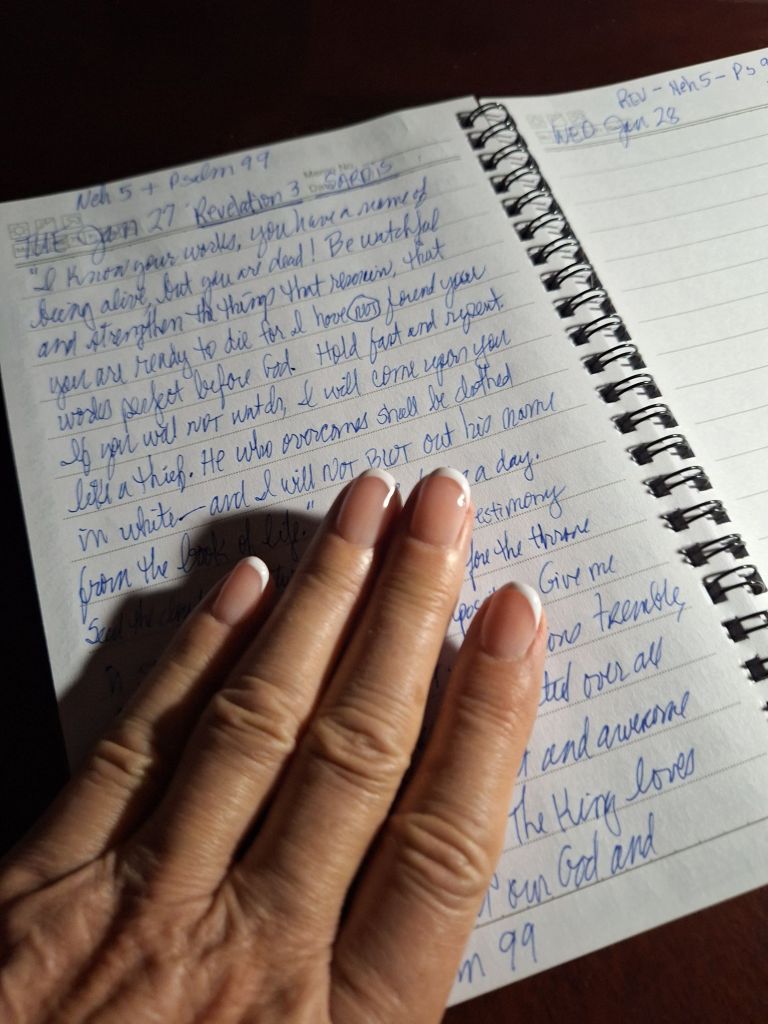 Neh 5 + Psalm 99
TUE Jan 27 Revelation 3 SARDIS
"I know your works, you have a name of
being alive, but you are dead! Be watchful
and strengthen the things that remain, that
you are ready to die for I have NOT found your
works perfect before God. Hold fast and repent.
If you will NOT watch, I will come upon you
like a thief. He who overcomes shall be clothed
in white— and I will NOT BLOT out his name
from the book of life." a day.
Send the estimony
fore the throne
Give me
ons tremble,
ted over all
and awesome
The King loves
our God and
m 99
REV - Neh 5 - Ps 9
WED Jan 28